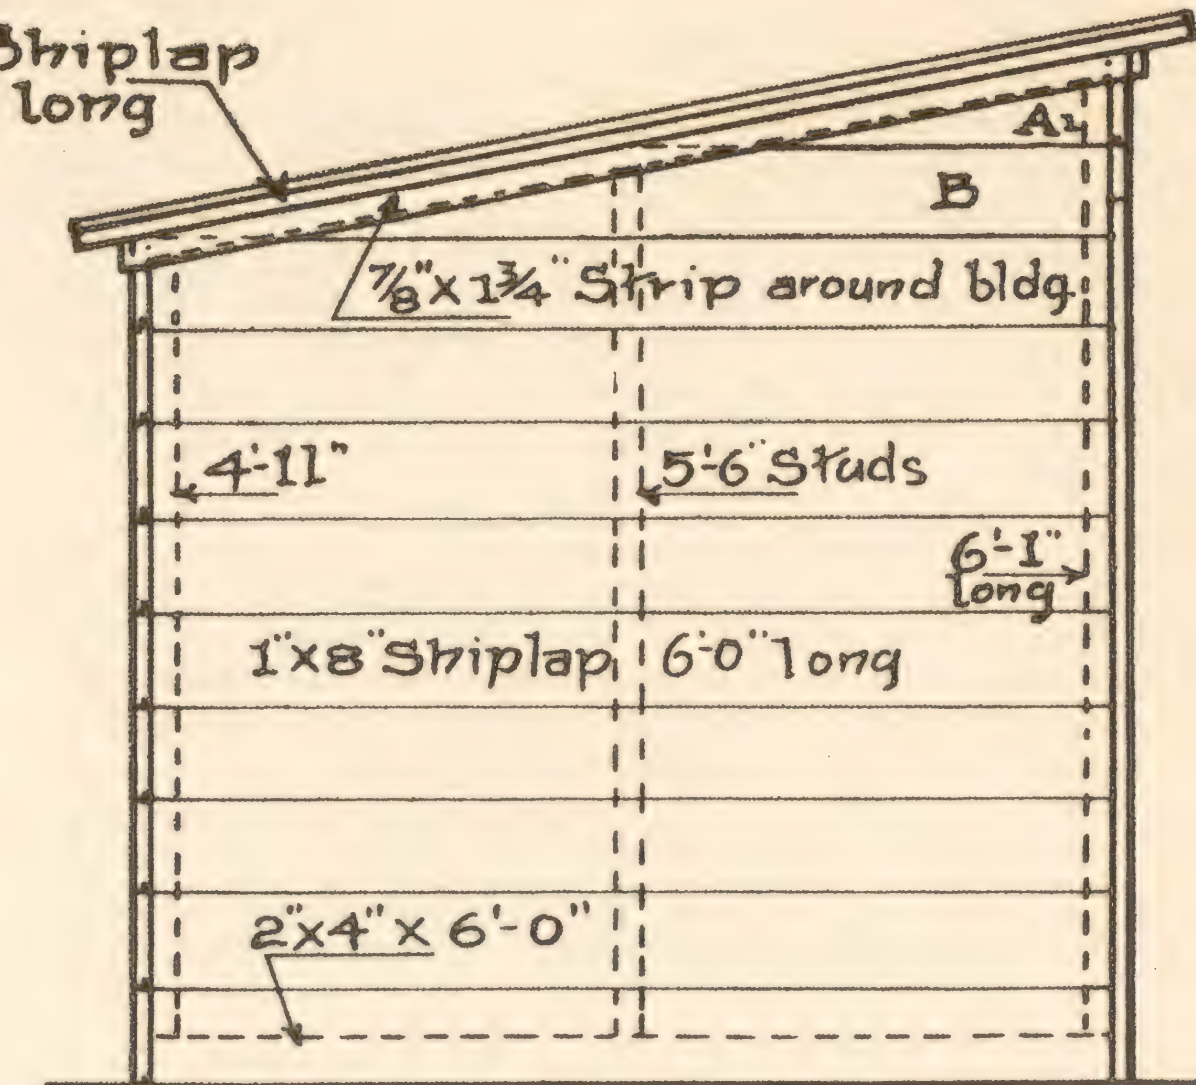 Shiplap
long
A
B
7/8" x 1 3/4" Strip around bldg.
4'-11"
5'-6" Studs
6'-1"
long
1" x 8" Shiplap 6'-0" long
2" x 4" x 6'-0"